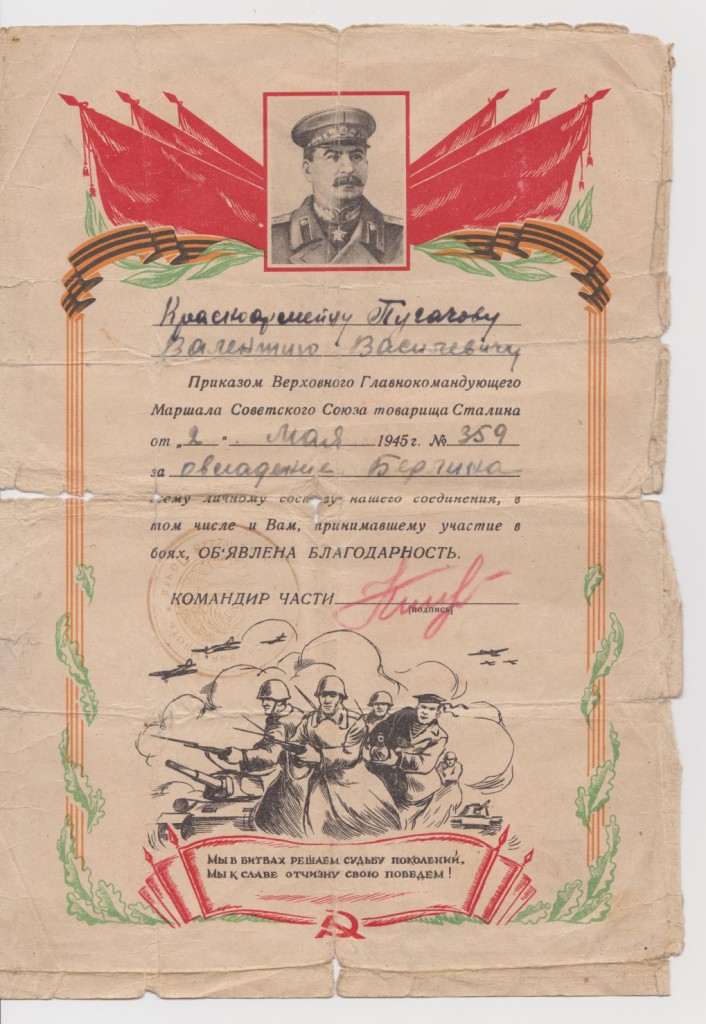 Красноармейцу Пугачову
Валентину Васильевичу
Приказом Верховного Главнокомандующего
Маршала Советского Союза товарища Сталина
от „2“ Мая 1945 г. № 359
за овладение Берлина
всему личному составу нашего соединения, в
том числе и Вам, принимавшему участие в
боях, ОБ'ЯВЛЕНА БЛАГОДАРНОСТЬ.
КОМАНДИР ЧАСТИ
(подпись)
МЫ В БИТВАХ РЕШАЕМ СУДЬБУ ПОКОЛЕНИЙ,
МЫ К СЛАВЕ ОТЧИЗНУ СВОЮ ПОВЕДЕМ!